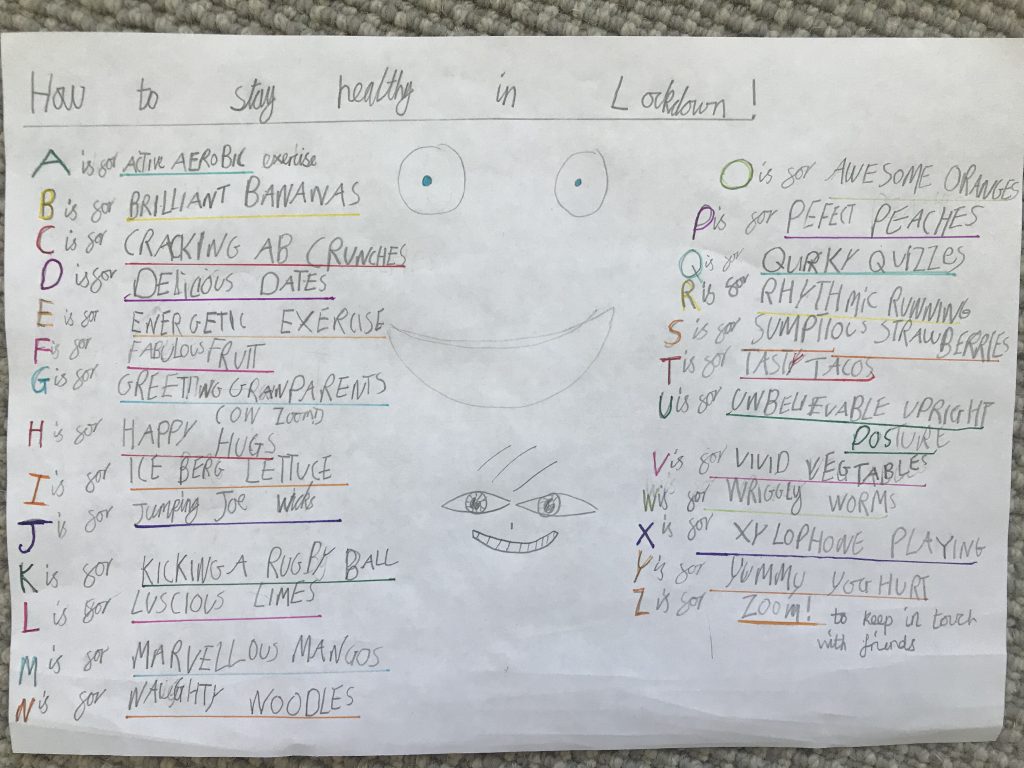 How to stay healthy in Lockdown!
A is for ACTIVE AEROBIC exercise
B is for BRILLIANT BANANAS
C is for CRACKING AB CRUNCHES
D is for DELICIOUS DATES
E is for ENERGETIC EXERCISE
F is for FABULOUS FRUIT
G is for GREETING GRANPARENTS
(ON ZOOM)
H is for HAPPY HUGS
I is for ICE BERG LETTUCE
J is for Jumping Joe Wicks
K is for KICKING A RUGBY BALL
L is for LUSCIOUS LIMES
M is for MARVELLOUS MANGOS
N is for NAUGHTY NOODLES
O is for AWESOME ORANGES
P is for PEFECT PEACHES
Q is for QUIRKY QUIZZES
R is for RHYTHMIC RUNNING
S is for SUMPTIOUS STRAWBERRIES
T is for TASTY TACOS
U is for UNBELIEVABLE UPRIGHT
POSTURE
V is for VIVID VEGTABLES
W is for WRIGGLY WORMS
X is for XYLOPHONE PLAYING
Y is for YUMMY YOGHURT
Z is for ZOOM! to keep in touch
with friends